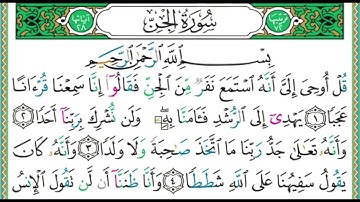 سُورَةُ الْجِنِّ
بِسْمِ اللَّهِ الرَّحْمَٰنِ الرَّحِيمِ
قُلْ أُوحِيَ إِلَيَّ أَنَّهُ اسْتَمَعَ نَفَرٌ مِنَ الْجِنِّ فَقَالُوا إِنَّا سَمِعْنَا قُرْءَانًا
عَجَبًا ١ يَهْدِي إِلَى الرُّشْدِ فَآمَنَّا بِهِ وَلَنْ نُشْرِكَ بِرَبِّنَا أَحَدًا ٢
وَأَنَّهُ تَعَالَى جَدُّ رَبِّنَا مَا اتَّخَذَ صَاحِبَةً وَلَا وَلَدًا ٣ وَأَنَّهُ كَانَ
يَقُولُ سَفِيهُنَا عَلَى اللَّهِ شَطَطًا ٤ وَأَنَّا ظَنَنَّا أَنْ لَنْ تَقُولَ الْإِنْسُ